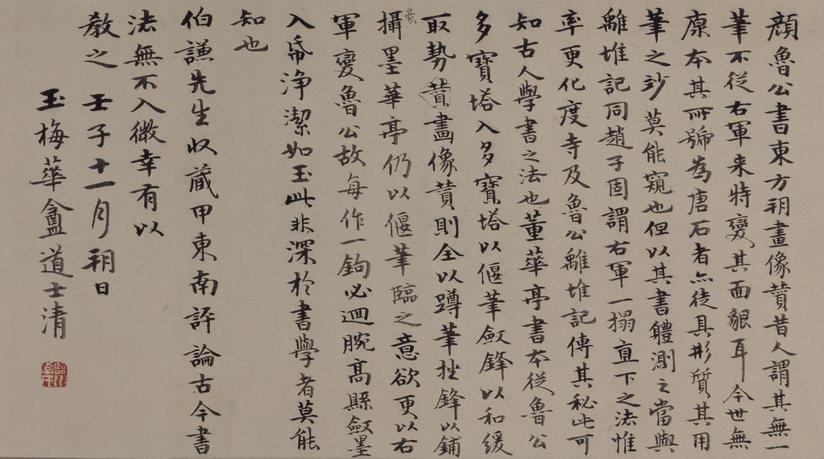 顏魯公書東方朔畫像贊昔人謂其無一
筆不從右軍来特變其面貌耳今世無
原本其所號為唐石者亦徒具形質其用
筆之妙莫能窺也但以其書體測之當與
離堆記同趙子固謂右軍一搨直下之法惟
率更化度寺及魯公離堆記傳其秘此可
知古人學書之法也董華亭書本從魯公
多寶塔入多寶塔以偃筆斂鋒以和緩
取勢贊畫像贊則全以蹲筆挫鋒以鋪
攝墨華亭仍以偃筆臨之意欲更以右
軍變魯公故每作一鉤必迴腕高縣斂墨
入帋淨潔如玉此非深於書學者莫能
知也
伯謙先生收藏甲東南評論古今書
法無不入微幸有以
教之 壬子十一月朔日
玉梅華盦道士清